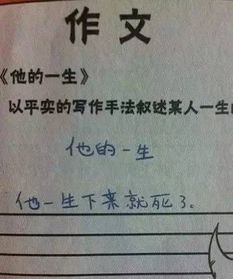 作文
《他的一生》
以平实的写作手法叙述某人一生
他的一生
他一生下来就死了。